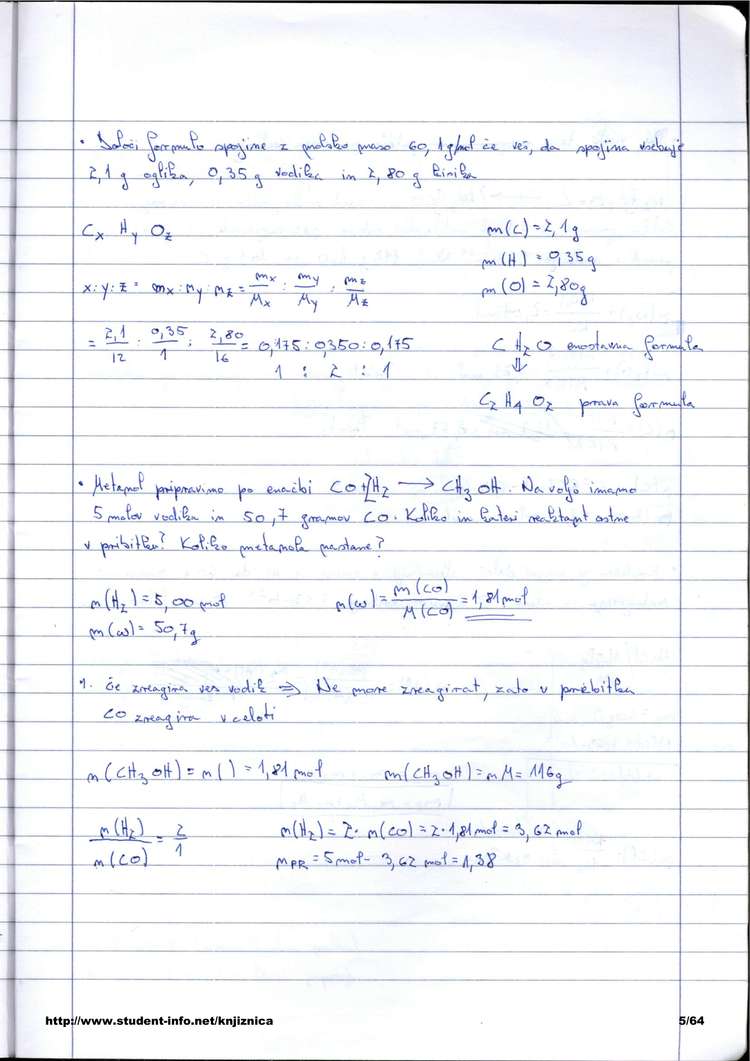 • Določi formulo spojine z molsko maso 60,1g/mol če veš, da spojina vsebuje
2,1 g ogljika, 0,35 g vodika in 2,80 g kisika
Cx Hy Oz
m(C) = 2,1g
m(H) = 0,35g
m(O) = 2,80g
x:y:z = nx : ny : nz = mx/Mx : my/My : mz/Mz
= 2,1/12 : 0,35/1 : 2,80/16 = 0,175 : 0,350 : 0,175
1 : 2 : 1
C H2 O enostavna formula
⇓
C2 H4 O2 prava formula
• Metanol pripravimo po enačbi CO+2H2 → CH3OH. Na voljo imamo
5 molov vodika in 50,7 gramov CO. Koliko in kateri reaktant ostne
v pribitku? Koliko metanola nastane?
n(H2) = 5,00 mol
m(CO) = 50,7g
n(CO) = m(CO)/M(CO) = 1,81 mol
1. če zreagira ves vodik ⇒ Ne more zreagirat, zato v prebitku
CO zreagira v celoti
n(CH3OH) = n( ) = 1,81 mol m(CH3OH) = nM = 116g
n(H2)/n(CO) = 2/1
n(H2) = 2·n(CO) = 2·1,81 mol = 3,62 mol
nPR = 5 mol - 3,62 mol = 1,38
http://www.student-info.net/knjiznica 5/64